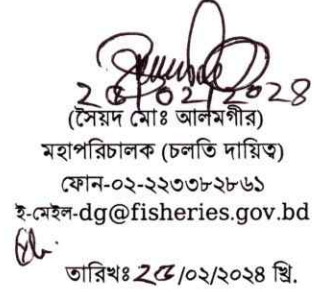 /০২/২০২৪
(সৈয়দ মোঃ আলমগীর)
মহাপরিচালক (চলতি দায়িত্ব)
ফোন-০২-২২৩৩৮২৮৬১
ই-মেইল-dg@fisheries.gov.bd
তারিখঃ /০২/২০২৪ খ্রি.